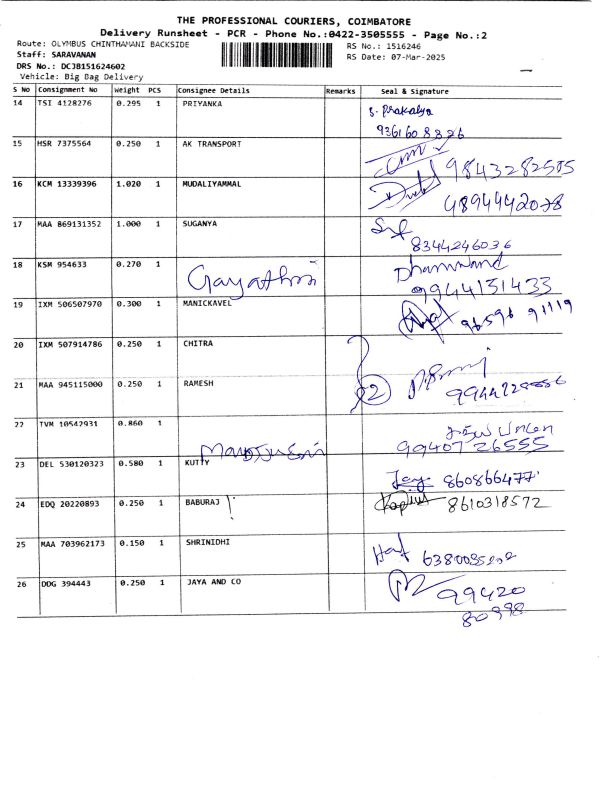 THE PROFESSIONAL COURIERS, COIMBATORE
Delivery Runsheet - PCR - Phone No.:0422-3505555 - Page No.:2
Route: OLYMBUS CHINTHAMANI BACKSIDE
RS No.: 1516246
Staff: SARAVANAN
RS Date: 07-Mar-2025
DRS No.: DCJB151624602
Vehicle: Big Bag Delivery
S No Consignment No Weight PCS Consignee Details Remarks Seal & Signature
14 TSI 4128276 0.295 1 PRIYANKA S. Prakalya
9361608826
15 HSR 7375564 0.250 1 AK TRANSPORT
16 KCM 13339396 1.020 1 MUDALIYAMMAL
4894442078
17 MAA 869131352 1.000 1 SUGANYA
8344246036
18 KSM 954633 0.270 1 Gayathri
9944131433
19 IXM 506507970 0.300 1 MANICKAVEL 96596 91119
20 IXM 507914786 0.250 1 CHITRA
21 MAA 945115000 0.250 1 RAMESH 2
22 TVM 10542931 0.860 1
99407 26555
23 DEL 530120323 0.580 1 KUTTY Jay 860866477
24 EDQ 20220893 0.250 1 BABURAJ 8610318572
25 MAA 703962173 0.150 1 SHRINIDHI
26 DDG 394443 0.250 1 JAYA AND CO 99420
80998